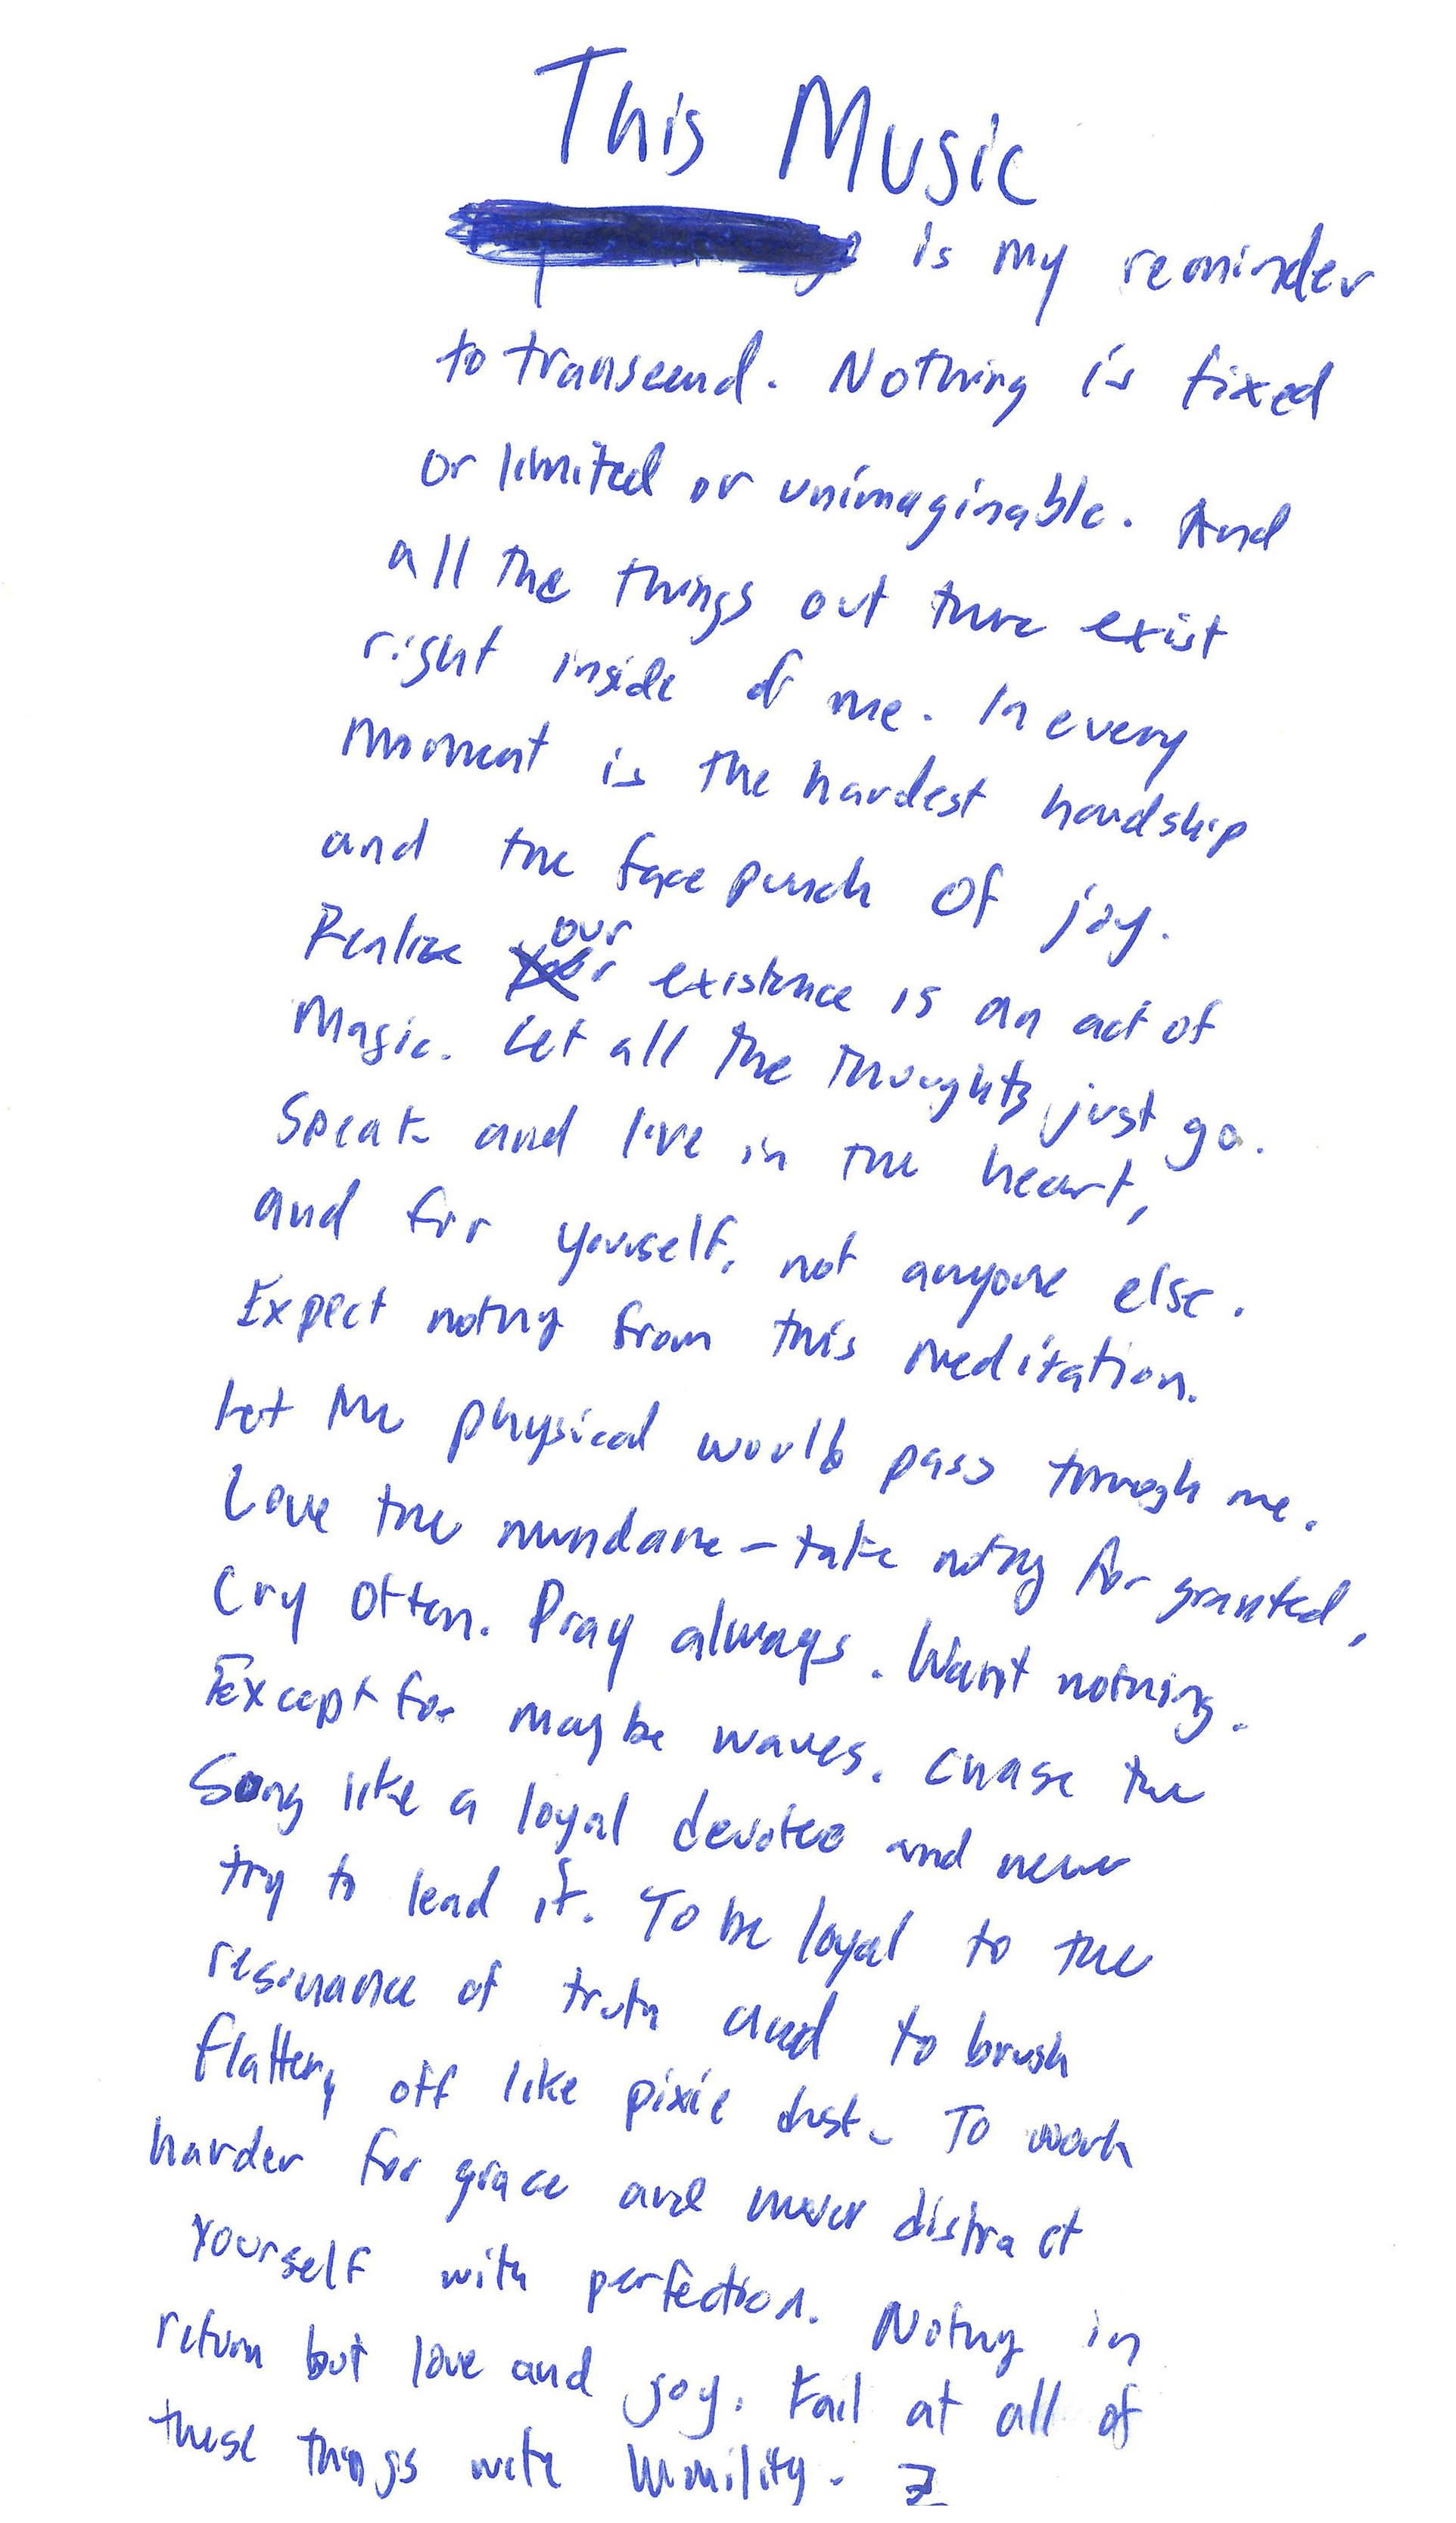 This Music
is my reminder
to transcend. Nothing is fixed
or limited or unimaginable. And
all the things out there exist
right inside of me. In every
moment is the hardest hardship
and the face punch of joy.
Realize our existence is an act of
magic. Let all the thoughts just go.
Speak and live in the heart,
and for yourself, not anyone else.
Expect nothing from this meditation.
Let the physical world pass through me.
Love the mundane - take nothing for granted,
Cry often. Pray always. Want nothing.
Except for maybe waves. Chase the
Song like a loyal devotee and never
try to lead it. To be loyal to the
resonance of truth and to brush
flattery off like pixie dust. To work
harder for grace and never distract
yourself with perfection. Nothing in
return but love and joy. Fail at all of
these things with humility. Z